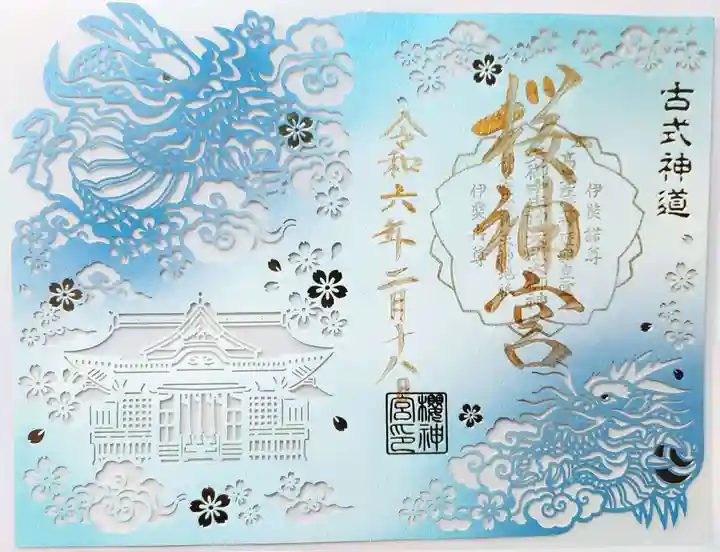 古式神道
桜神宮
伊奘諾尊
伊奘冉尊
令和六年二月十八日
櫻神
宮印